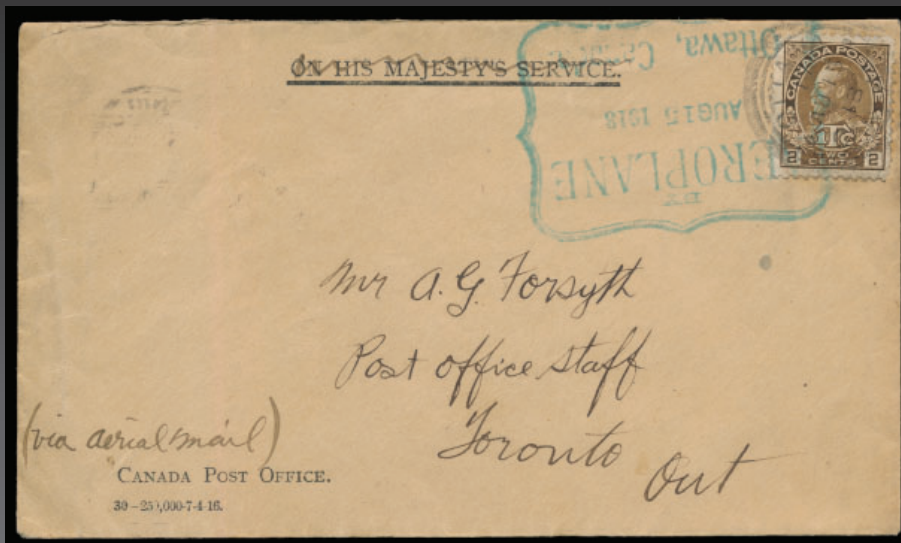 ON HIS MAJESTY'S SERVICE.
BY
AEROPLANE
AUG 15 1918
Ottawa, Canada
CANADA POSTAGE
1TC
2 TWO CENTS 2
Mr A.G. Forsyth
Post office staff
Toronto
Ont
(via aerial mail)
CANADA POST OFFICE.
30-250,000-7-4-16.